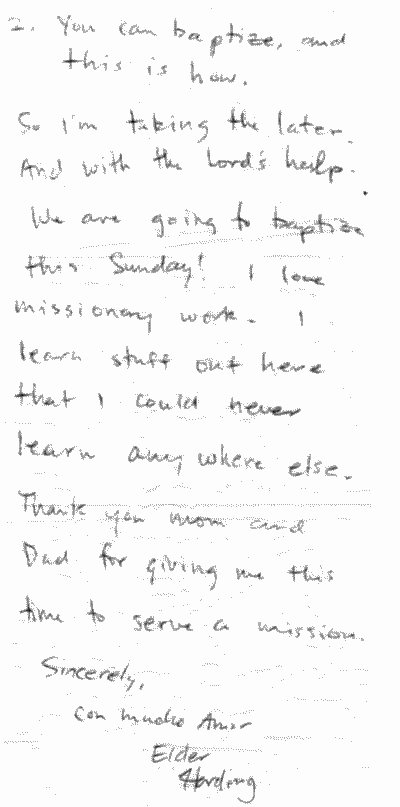 2. You can baptize, and
this is how.
So I'm taking the later.
And with the Lord's help.
We are going to baptize
this Sunday! I love
missionary work. I
learn stuff out here
that I could never
learn any where else.
Thank you mom and
Dad for giving me this
time to serve a mission.
Sincerely,
con mucho Amor
Elder
Harding